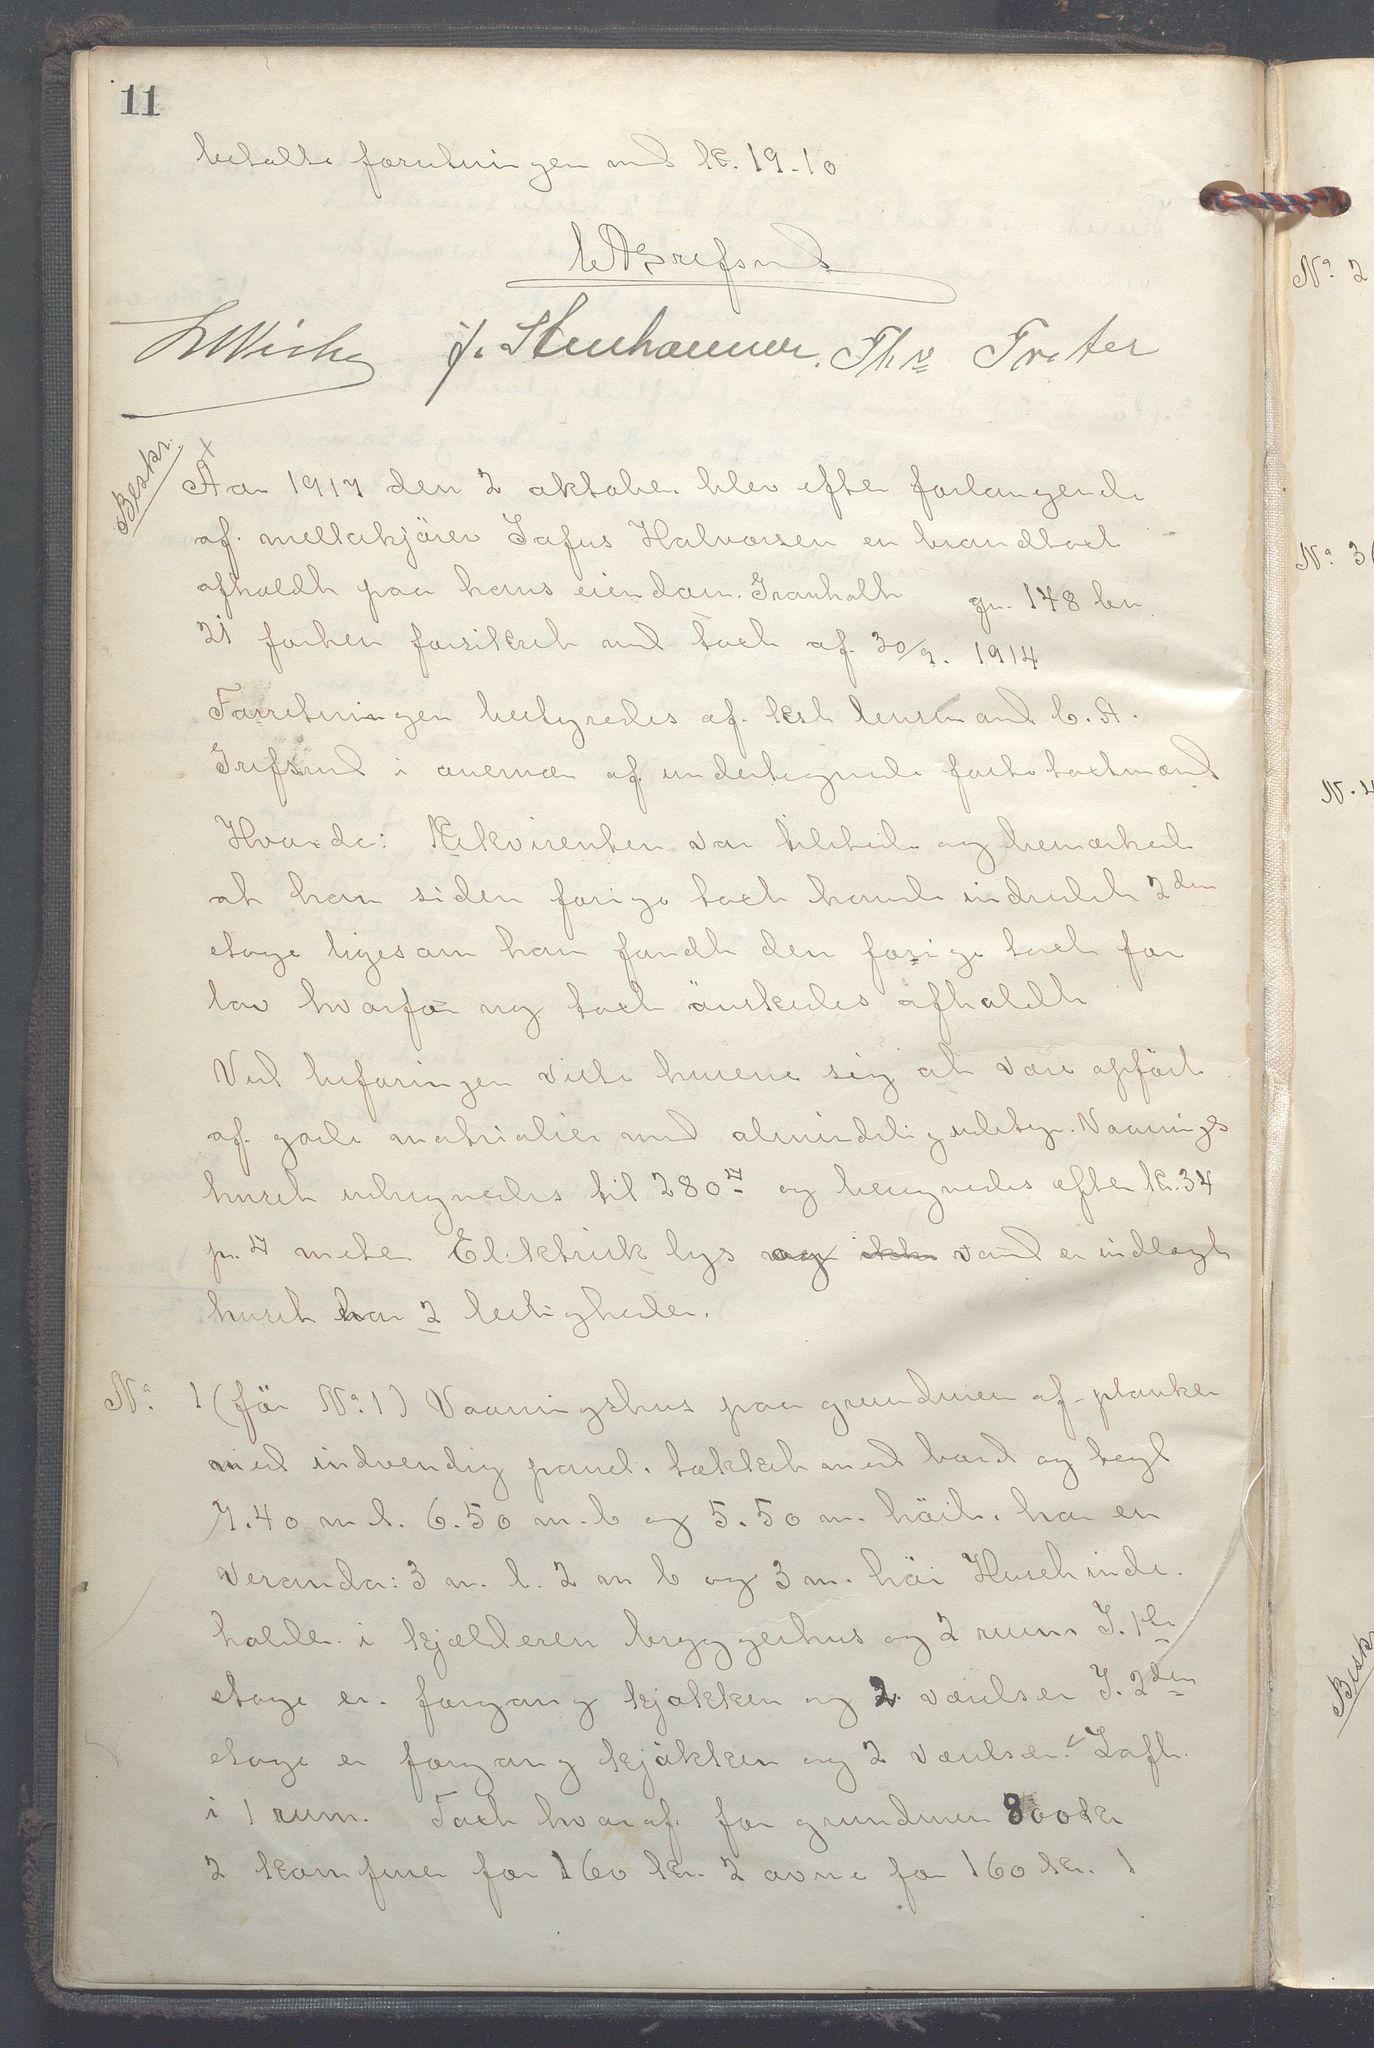 11
betalte forretningen med kr. 19.10
C A Grefsrud
J. Stenhammer. Thv Trater
Beskr.
Aar 1917 den 2 oktober blev efter forlangende
af melkekjører Halvorsen en brandtaxt
afholdt paa hans eiendom Granholt gn. 148 bn.
21 forhen forsikret med taxt af 30/9. 1914
Forretningen bestyredes af kst lensmand C. A.
Grefsrud i overvær af undertegnede faste taxtmænd
Hvorda: Rekvirenten var tilstede og bemærkede
at han siden forige taxt havde indredet 2den
etage ligesom han fandt den forige taxt for
lav hvorfor ny taxt önskedes afholdt
Ved befaringen viste husene sig at være opfört
af gode materialier med almindelig udstyr. Vaanings
huset udregnedes til 280 og beregnedes efter kr. 34
pr. meter Elektrisk lys og ikke vand er indlagt
huset har 2 leiligheder.
No. 1 (för No. 1) Vaaningshus paa grundmur af planker
med indvendig panel. tækket med bord og tegl
7.40 m l. 6.50 m. b og 5.50 m. höit. har en
Veranda: 3 m. l. 2 m b og 3 m. höi Huset inde.
holder i kjælderen bryggerhus og 2 rum. I. 1te
etage er. forgang kjøkken og 2 værelser I. 2den
etage er forgang kjøkken og 2 værelser. Loft
i 1 rum. Taxt hvoraf. for grundmur 800 kr
2 kamfuer for 160 kr. 2 ovne for 160 kr. 1
No 2
No 3
N. 4
Beskr